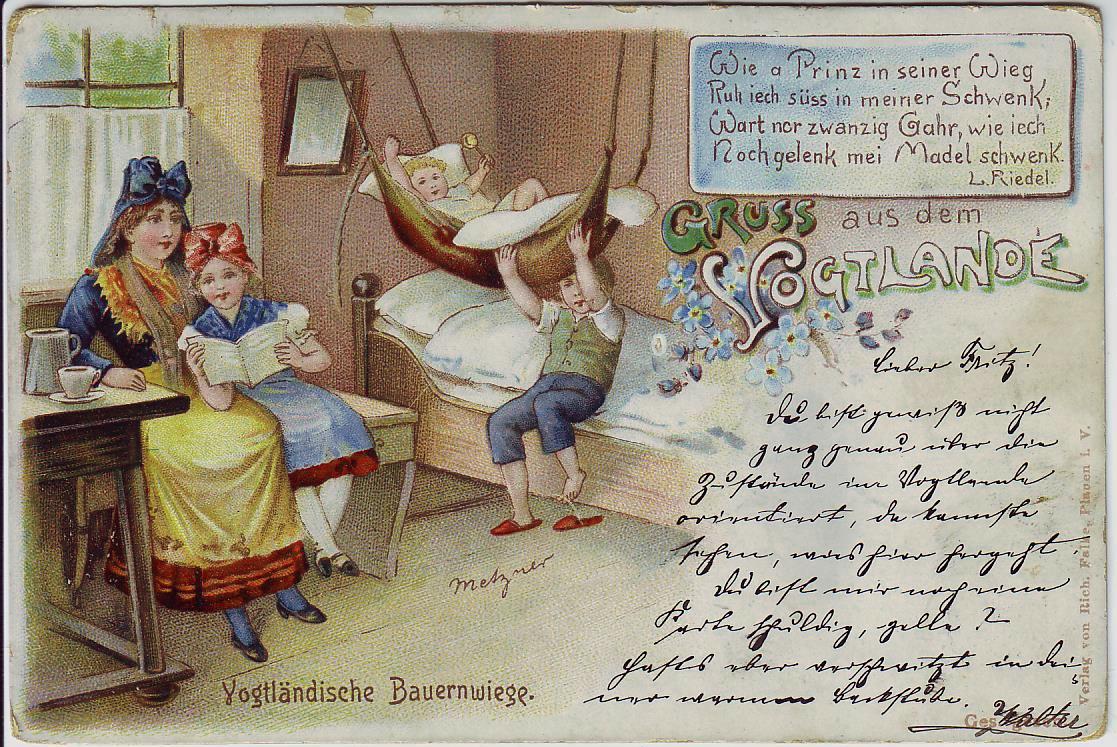 Wie a Prinz in seiner Wieg
Ruh iech süss in meiner Schwenk;
Wart nor zwanzig Gahr, wie iech
Noch gelenk mei Madel schwenk.
L. Riedel.
GRUSS aus dem
VOGTLANDE
Lieber Fritz!
Du bist gewiß nicht
ganz genau über die
Zustände im Vogtlande
orientiert, da kannste
sehen, was hier hergeht.
Du bist mir noch eine
Karte schuldig, gelle?
hasts aber verschwitzt in dei-
ner warmen Backstube.
Walter
Metzner
Vogtländische Bauernwiege.
Verlag von Rich. Falke, Plauen i. V.